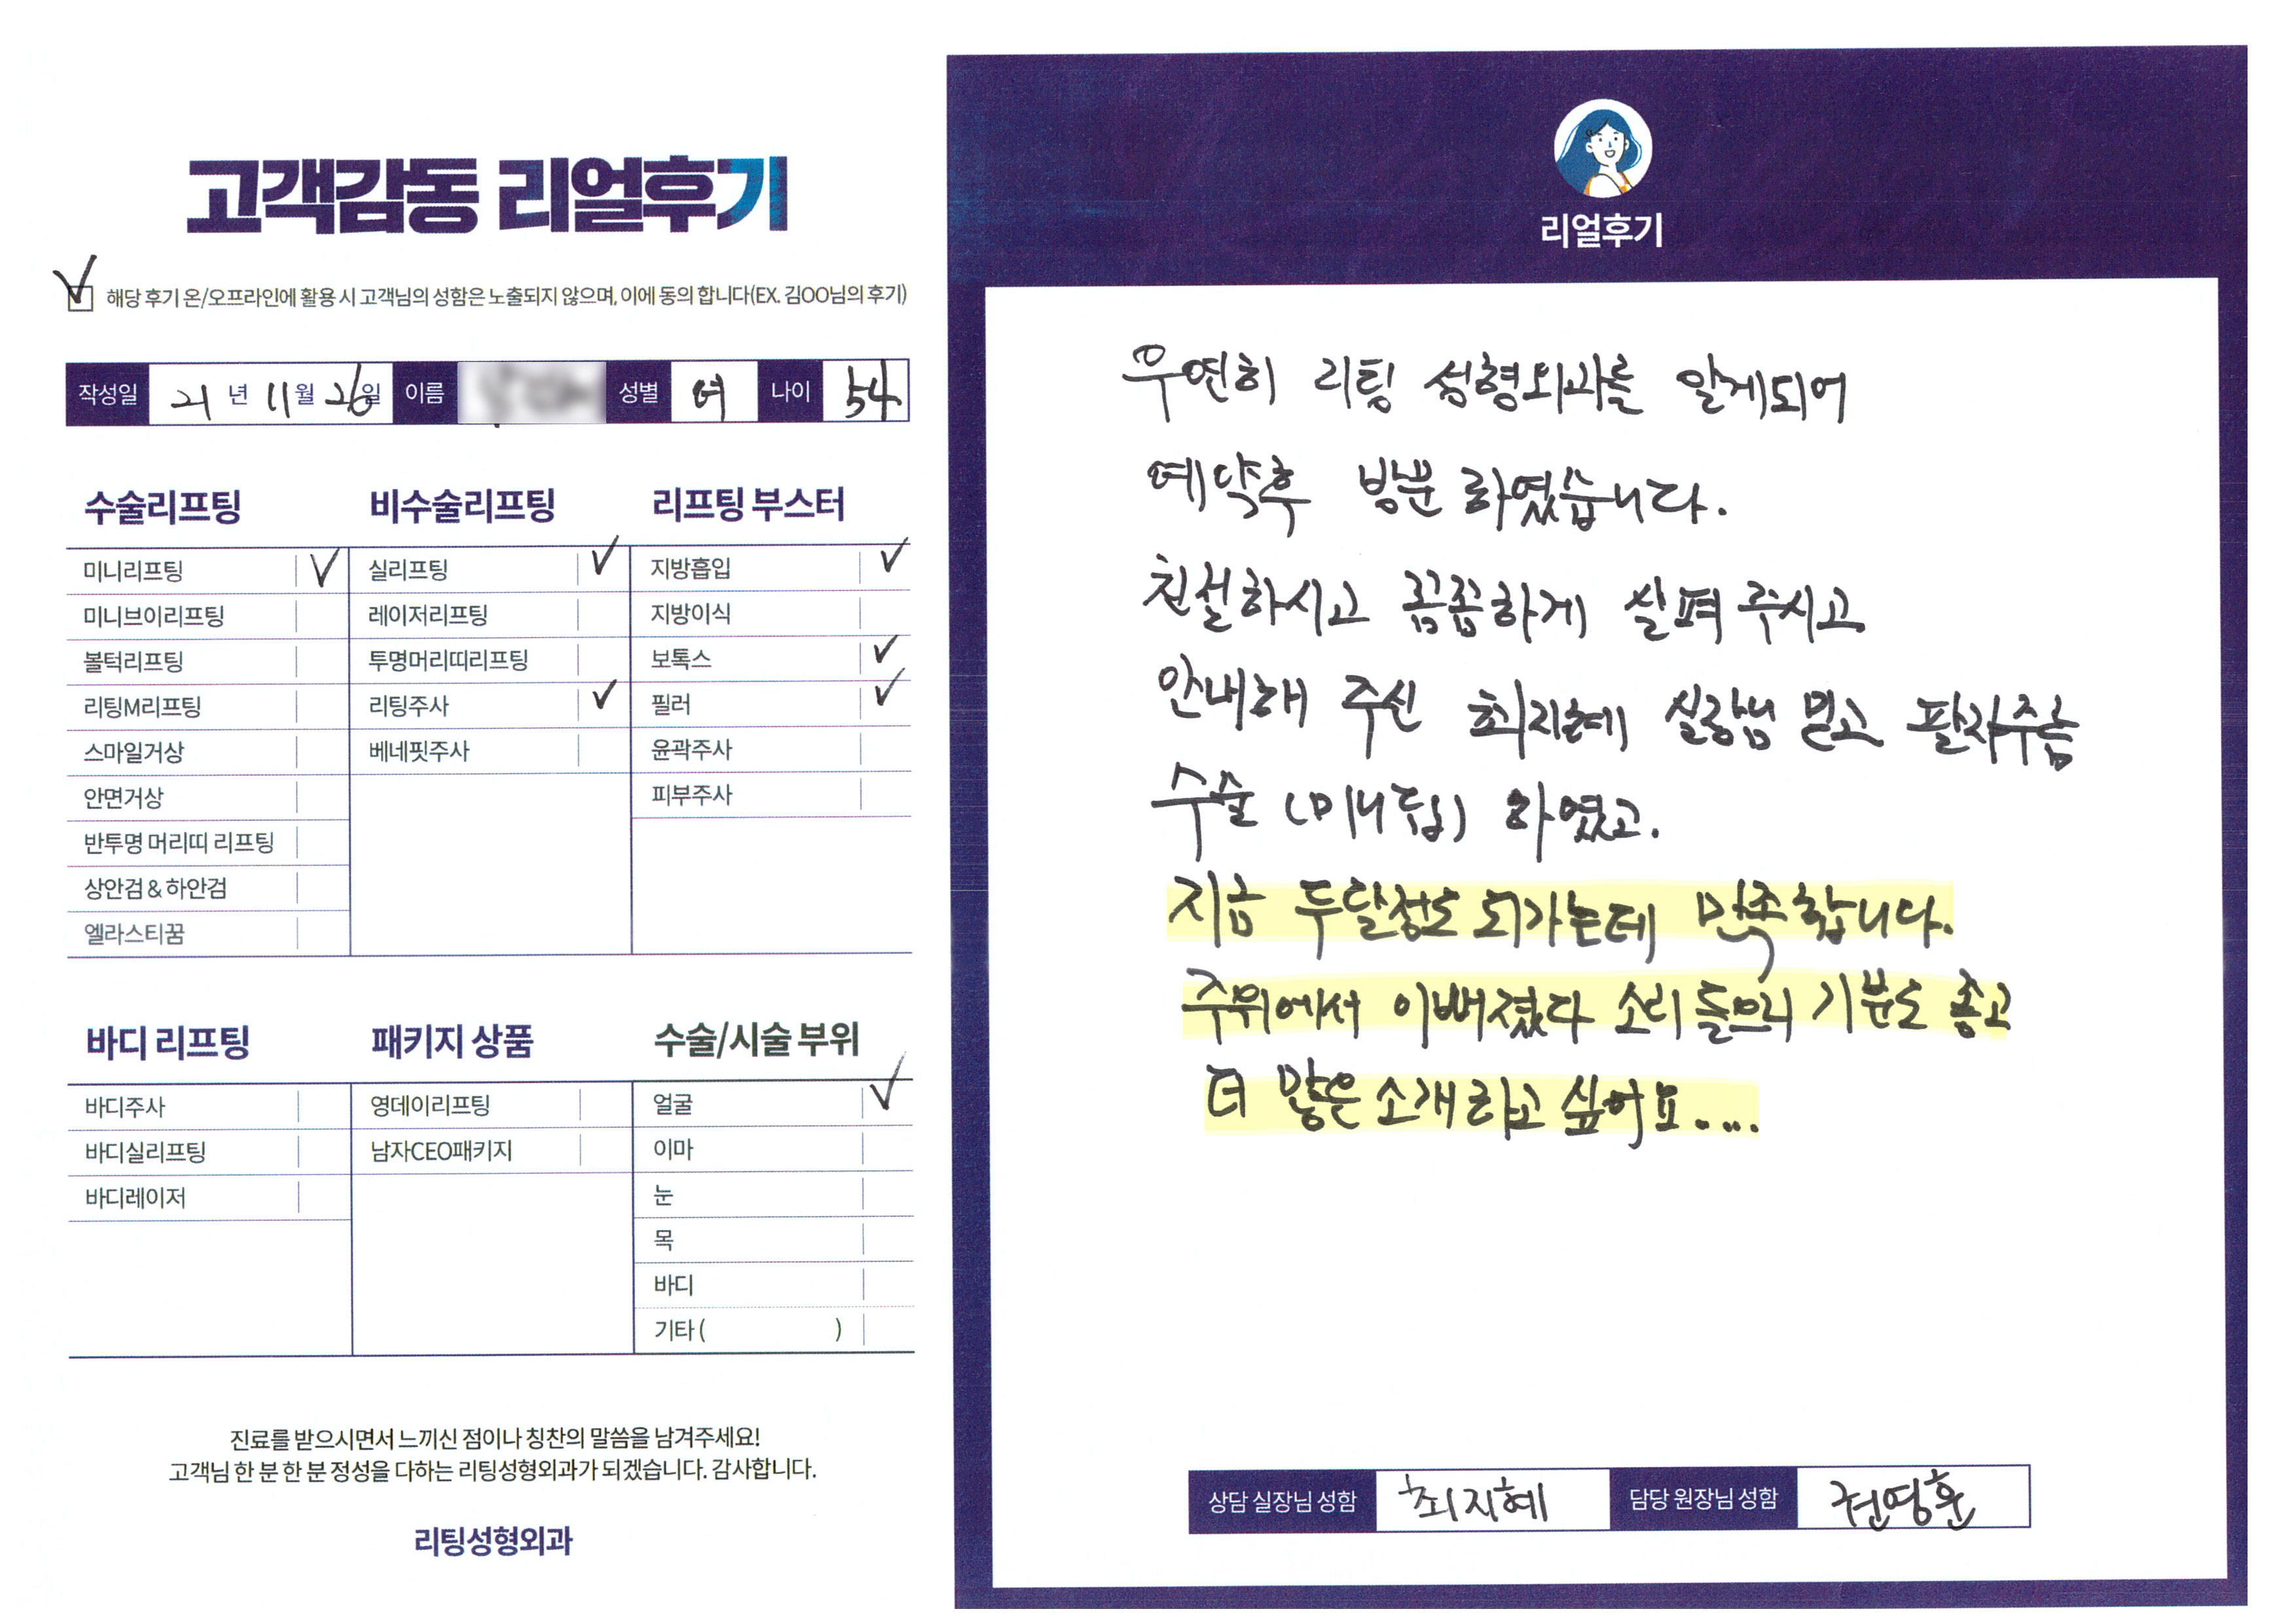 고객감동 리얼후기
해당 후기 온/오프라인에 활용 시 고객님의 성함은 노출되지 않으며, 이에 동의 합니다(EX. 김OO님의 후기)
작성일 21 년 11월 26일 이름 성별 여 나이 54
수술리프팅
미니리프팅
미니브이리프팅
볼턱리프팅
리팅M리프팅
스마일거상
안면거상
반투명 머리띠 리프팅
상안검 & 하안검
엘라스티꿈
비수술리프팅
실리프팅
레이저리프팅
투명머리띠리프팅
리팅주사
베네핏주사
리프팅 부스터
지방흡입
지방이식
보톡스
필러
윤곽주사
피부주사
바디 리프팅
바디주사
바디실리프팅
바디레이저
패키지 상품
영데이리프팅
남자CEO패키지
수술/시술 부위
얼굴
이마
눈
목
바디
기타 ( )
진료를 받으시면서 느끼신 점이나 칭찬의 말씀을 남겨주세요!
고객님 한 분 한 분 정성을 다하는 리팅성형외과가 되겠습니다. 감사합니다.
리팅성형외과
리얼후기
우연히 리팅 성형외과를 알게되어
예약후 방문 하였습니다.
친절하시고 꼼꼼하게 살펴 주시고
안내해 주신 최지혜 실장님 믿고 팔자주름
수술 (미니) 하였고.
지금 두달정도 되가는데 만족합니다.
주위에서 이뻐졌다 소리 들으니 기분도 좋고
더 많은 소개하고 싶어요....
상담 실장님 성함 최지혜 담당 원장님 성함 권영훈